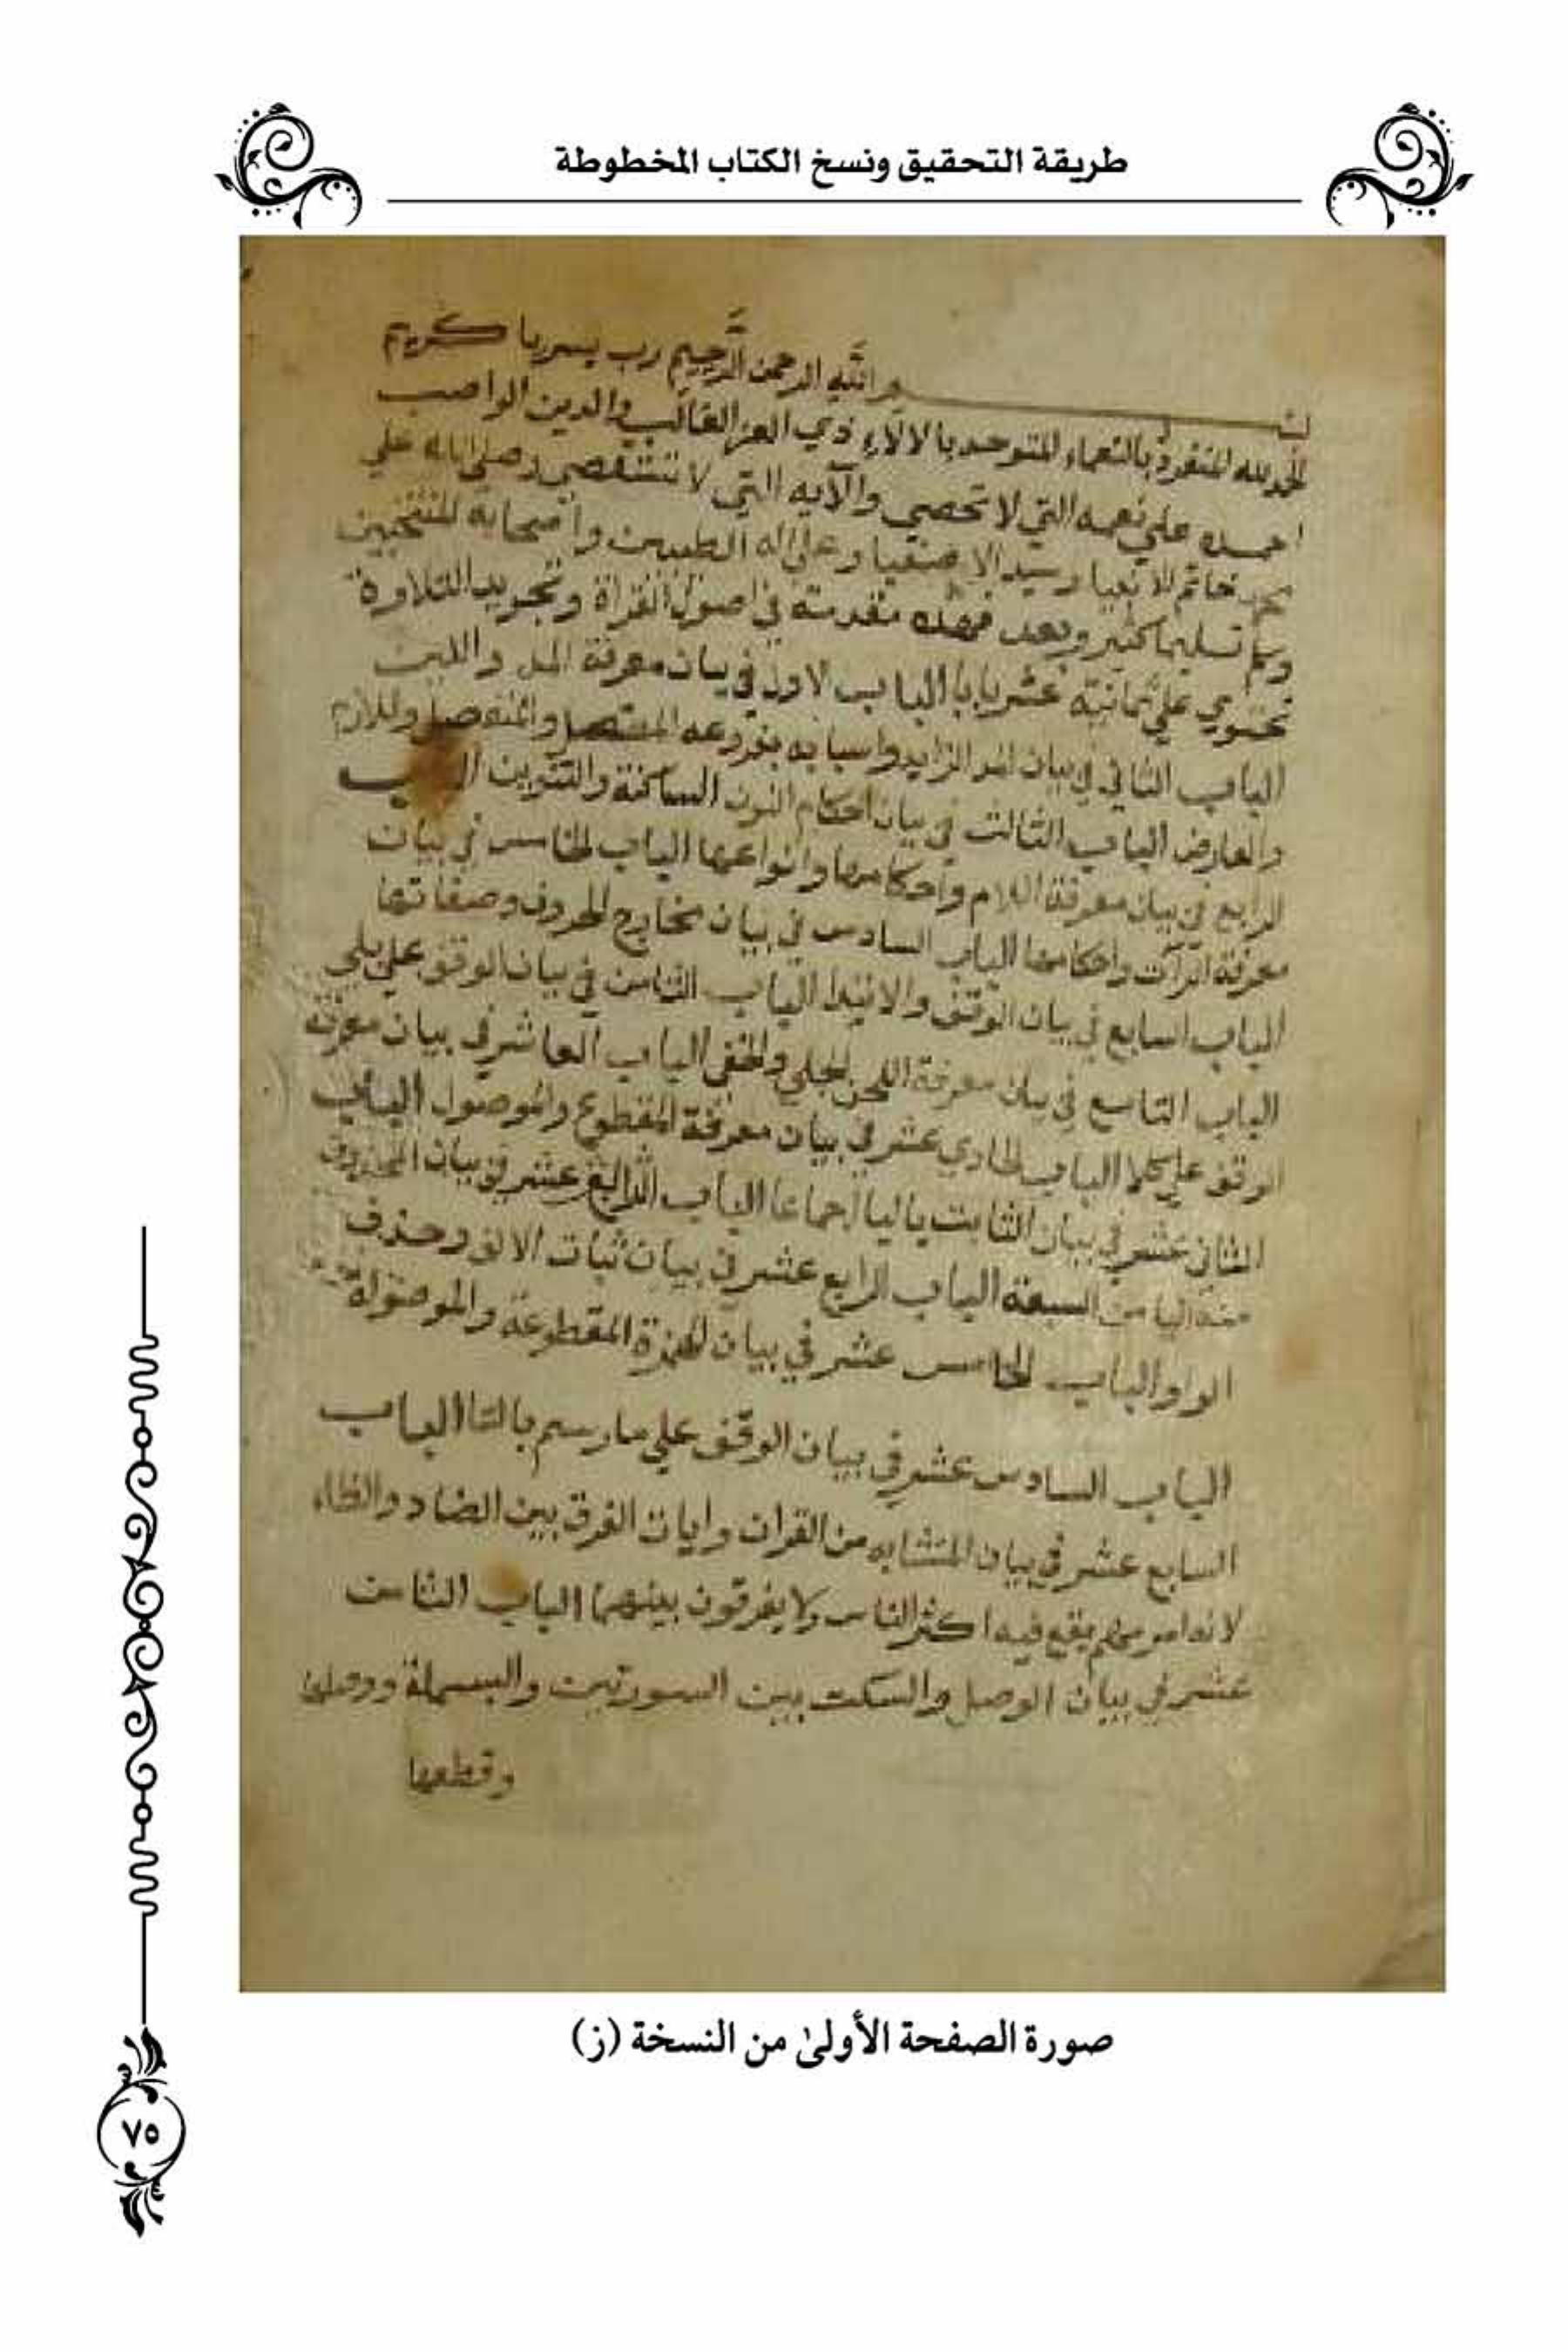 طريقة التحقيق ونسخ الكتاب المخطوطة
بسم الله الرحمن الرحيم رب يسر يا كريم
الحمد لله المتفرد بالنعماء المتوحد بالالاء ذي العز الغالب والدين الواصب
احمده علي نعمه التي لا تحصي والآيه التي لا تستقصي وصلى الله علي
محمد خاتم الانبيا وسيد الاصفيا وعلى اله الطيبين واصحابه المنتخبين
وسلم تسليما كثير وبعد فهذه مقدمة في اصول القراة وتجويد التلاوة
تحتوي علي ثمانية عشر بابا الباب الاول في بيان معرفة المد واللين
الباب الثاني في بيان المد الزايد واسبابه بفروعه المتصل والمنفصل واللازم
والعارض الباب الثالث في بيان احكام النون الساكنة والتنوين الباب
الرابع في بيان معرفة اللام واحكامها وانواعها الباب الخامس في بيان
معرفة الرآت واحكامها الباب السادس في بيان مخارج الحروف وصفاتها
الباب السابع في بيان الوقف والابتدا الباب الثامن في بيان الوقف علي بلي
الباب التاسع في بيان معرفة اللحن الجلي والخفي الباب العاشر في بيان معرفة
الوقف علي كلا الباب الحادي عشر في بيان معرفة المقطوع والموصول الباب
الثاني عشر في بيان الثابت باليا اجماعا الباب الرابع عشر في بيان المحذوف
منه اليا من السبعة الباب الرابع عشر في بيان ثبات الالف وحذف
الواو والباب الخامس عشر في بيان الهمزة المقطوعة والموصولة
الباب السادس عشر في بيان الوقف علي ما رسم بالتا الباب
السابع عشر في بيان المتشابه من القران وايات الفرق بين الضاد والظاء
لانه امر مهم يقع فيه اكثر الناس ولا يفرقون بينهما الباب الثامن
عشر في بيان الوصل والسكت بين السورتين والبسملة ووصل
وقطعها
صورة الصفحة الأولىٰ من النسخة (ز)
٧٥